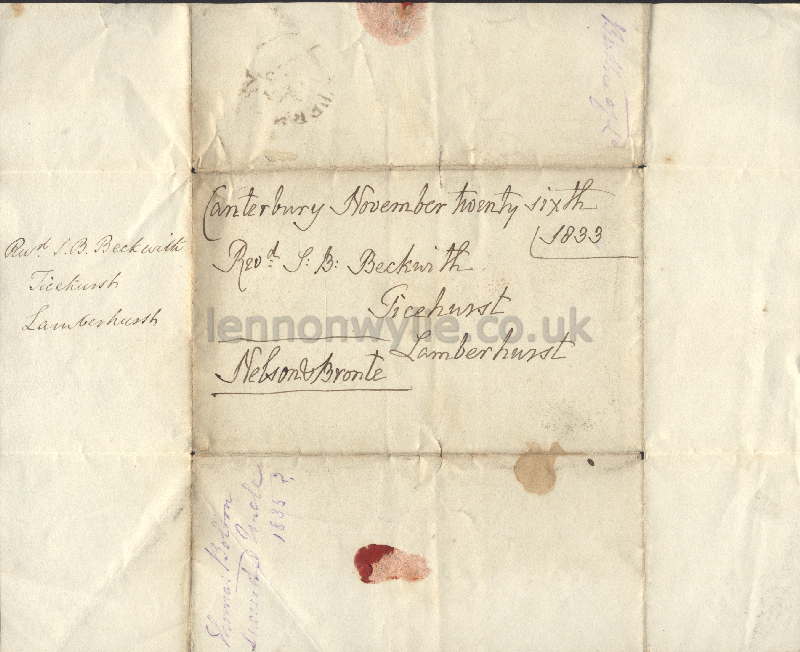 Canterbury November twenty sixth
1833
Revd. S: B: Beckwith
Ticehurst
Lamberhurst
Nelson & Bronte
Revd. S. B. Beckwith
Ticehurst
Lamberhursh
lennonwylie.co.uk
Thomas Bolton
Uncle
1835?